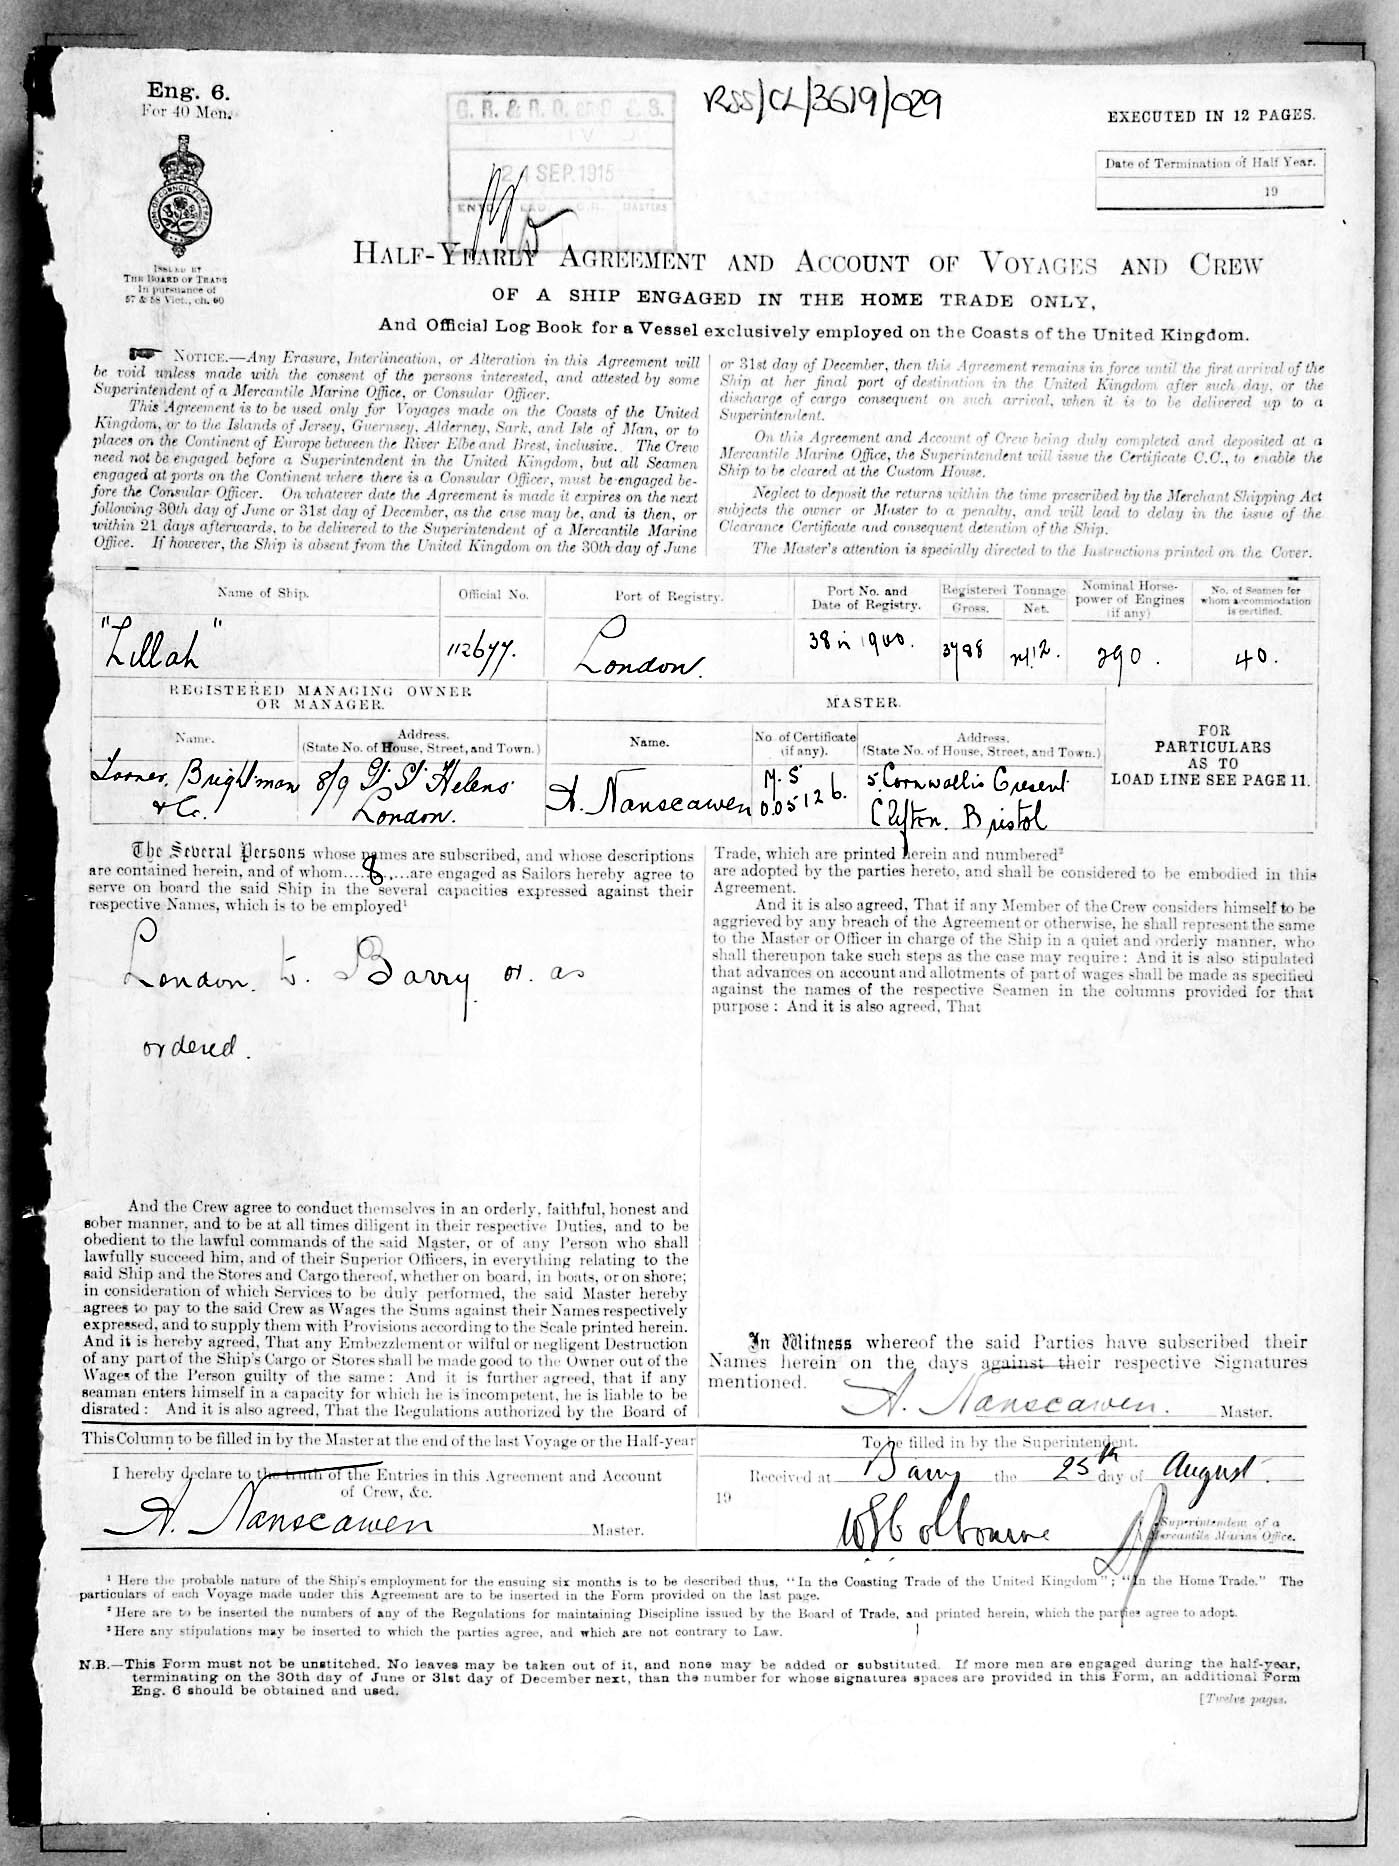 Eng. 6.
For 40 Men.
RSS/CL/3619/029
EXECUTED IN 12 PAGES.
Date of Termination of Half Year.
19
24 SEP. 1915
ISSUED BY
THE BOARD OF TRADE
In pursuance of
57 & 58 Vict., ch. 60
HALF-YEARLY AGREEMENT AND ACCOUNT OF VOYAGES AND CREW
OF A SHIP ENGAGED IN THE HOME TRADE ONLY,
And Official Log Book for a Vessel exclusively employed on the Coasts of the United Kingdom.
NOTICE.—Any Erasure, Interlineation, or Alteration in this Agreement will
be void unless made with the consent of the persons interested, and attested by some
Superintendent of a Mercantile Marine Office, or Consular Officer.
This Agreement is to be used only for Voyages made on the Coasts of the United
Kingdom, or to the Islands of Jersey, Guernsey, Alderney, Sark, and Isle of Man, or to
places on the Continent of Europe between the River Elbe and Brest, inclusive. The Crew
need not be engaged before a Superintendent in the United Kingdom, but all Seamen
engaged at ports on the Continent where there is a Consular Officer, must be engaged be-
fore the Consular Officer. On whatever date the Agreement is made it expires on the next
following 30th day of June or 31st day of December, as the case may be, and is then, or
within 21 days afterwards, to be delivered to the Superintendent of a Mercantile Marine
Office. If however, the Ship is absent from the United Kingdom on the 30th day of June
or 31st day of December, then this Agreement remains in force until the first arrival of the
Ship at her final port of destination in the United Kingdom after such day, or the
discharge of cargo consequent on such arrival, when it is to be delivered up to a
Superintendent.
On this Agreement and Account of Crew being duly completed and deposited at a
Mercantile Marine Office, the Superintendent will issue the Certificate C.C., to enable the
Ship to be cleared at the Custom House.
Neglect to deposit the returns within the time prescribed by the Merchant Shipping Act
subjects the owner or Master to a penalty, and will lead to delay in the issue of the
Clearance Certificate and consequent detention of the Ship.
The Master's attention is specially directed to the Instructions printed on the Cover.
Name of Ship. Official No. Port of Registry. Port No. and Date of Registry. Registered Tonnage Gross. Net. Nominal Horse-power of Engines (if any) No. of Seamen for whom accommodation is certified.
"Lillah" 112677. London. 38 in 1900. 3788 2412. 290. 40.
REGISTERED MANAGING OWNER
OR MANAGER.
MASTER.
FOR
PARTICULARS
AS TO
LOAD LINE SEE PAGE 11.
Name. Address. (State No. of House, Street, and Town.) Name. No. of Certificate (if any). Address. (State No. of House, Street, and Town.)
Brightman 8/9 Gt. St. Helens A. Nanscawen 5. Cornwallis Cresent
& Co. London. 005126. Clifton. Bristol
The Several Persons whose names are subscribed, and whose descriptions
are contained herein, and of whom....8....are engaged as Sailors hereby agree to
serve on board the said Ship in the several capacities expressed against their
respective Names, which is to be employed¹
London. to. Barry or. as
ordered.
And the Crew agree to conduct themselves in an orderly, faithful, honest and
sober manner, and to be at all times diligent in their respective Duties, and to be
obedient to the lawful commands of the said Master, or of any Person who shall
lawfully succeed him, and of their Superior Officers, in everything relating to the
said Ship and the Stores and Cargo thereof, whether on board, in boats, or on shore;
in consideration of which Services to be duly performed, the said Master hereby
agrees to pay to the said Crew as Wages the Sums against their Names respectively
expressed, and to supply them with Provisions according to the Scale printed herein.
And it is hereby agreed, That any Embezzlement or wilful or negligent Destruction
of any part of the Ship's Cargo or Stores shall be made good to the Owner out of the
Wages of the Person guilty of the same: And it is further agreed, that if any
seaman enters himself in a capacity for which he is incompetent, he is liable to be
disrated: And it is also agreed, That the Regulations authorized by the Board of
Trade, which are printed herein and numbered²
are adopted by the parties hereto, and shall be considered to be embodied in this
Agreement.
And it is also agreed, That if any Member of the Crew considers himself to be
aggrieved by any breach of the Agreement or otherwise, he shall represent the same
to the Master or Officer in charge of the Ship in a quiet and orderly manner, who
shall thereupon take such steps as the case may require: And it is also stipulated
that advances on account and allotments of part of wages shall be made as specified
against the names of the respective Seamen in the columns provided for that
purpose: And it is also agreed, That
In Witness whereof the said Parties have subscribed their
Names herein on the days against their respective Signatures
mentioned.
A. Nanscawen. Master.
This Column to be filled in by the Master at the end of the last Voyage or the Half-year
I hereby declare to the truth of the Entries in this Agreement and Account
of Crew, &c.
A. Nanscawen Master.
To be filled in by the Superintendent.
Received at Barry the 25th day of August.
19
Superintendent of a
Mercantile Marine Office.
¹ Here the probable nature of the Ship's employment for the ensuing six months is to be described thus, "In the Coasting Trade of the United Kingdom"; "In the Home Trade." The
particulars of each Voyage made under this Agreement are to be inserted in the Form provided on the last page.
² Here are to be inserted the numbers of any of the Regulations for maintaining Discipline issued by the Board of Trade, and printed herein, which the parties agree to adopt.
³ Here any stipulations may be inserted to which the parties agree, and which are not contrary to Law.
N.B.—This Form must not be unstitched. No leaves may be taken out of it, and none may be added or substituted. If more men are engaged during the half-year,
terminating on the 30th day of June or 31st day of December next, than the number for whose signatures spaces are provided in this Form, an additional Form
Eng. 6 should be obtained and used.
[Twelve pages.